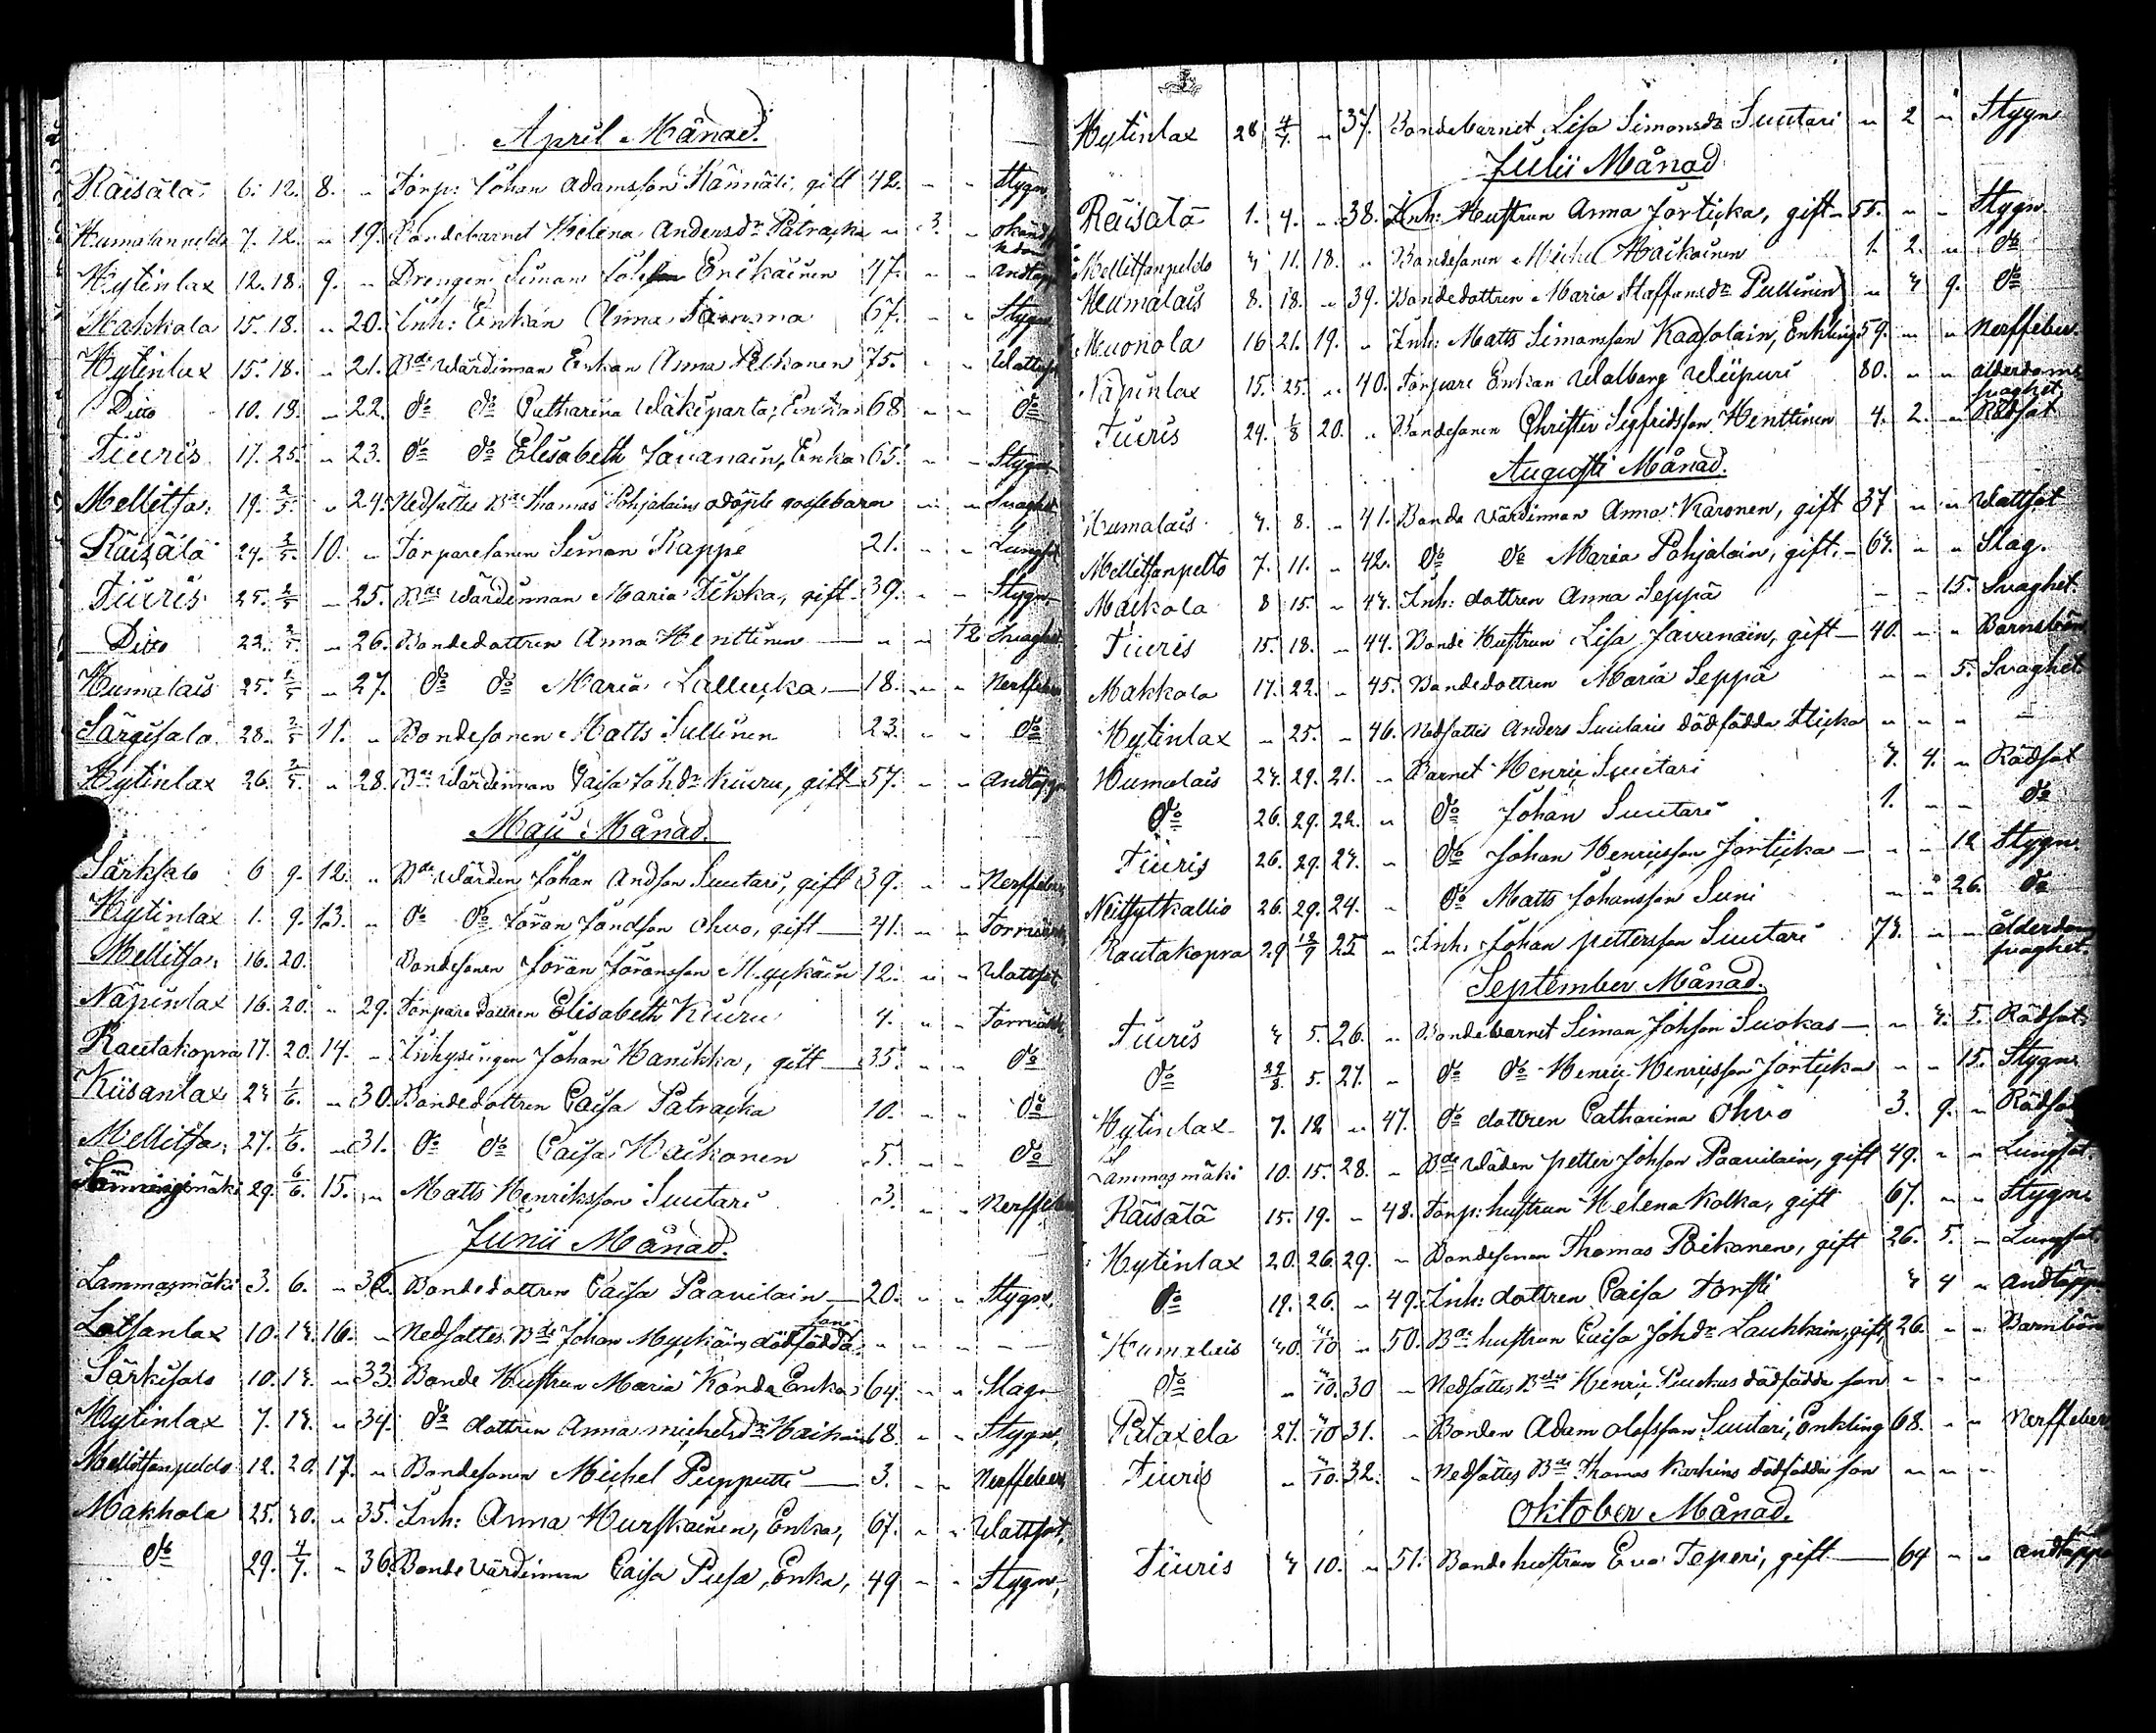 April Månad.
Räisälä. 6. 12. 8. „ Torp: Johan Adamsson Hännäli, gift 42. „ „ Stygn
Humalanneldo 7. 12. „ 19. Bondebarnet Helena Andersdr Patracka „ 3. „
Hytinlax 12. 18. 9. „ Drengen Simon Enckainen 47. „ „ Andtäpp
Makkola 15. 18. „ 20. Inh: Enkan Anna 67. „ „ Stygn
Hytinlax 15. 18. „ 21. Bde Wärdinnan Enkan Anna Pelkonen 75. „ „ Wattus
Ditto 10. 18. „ 22. do do Catharina Wäkiparta, Enkan 68 „ „ do
Tiuris 17. 25. „ 23. do do Elisabeth Javanain, Enka 65. „ „ Stygn
Mellitsa: 19. 2/5. „ 24. Nedsattes Bde Thomas Pohjalains odöpte gossebarn „ „ „ Svaghet
Räisälä 24. 2/5. 10. „ Torparesonen Simon Rappe 21. „ „ Lungsot
Tiuris 25. 2/5 „ 25. Bde Wärdinnan Maria Tikka, gift 39. „ „ Stygn
Ditto 22. 2/5. „ 26. Bondedottren Anna Henttinen „ „ Svaghet
Humalais 25. 2/5 „ 27. do do Maria Lallucka 18. „ „ Nerffeber
Särgisalo 28. 2/5 11. „ Bondesonen Matts Sullinen 23. „ „ do
Hytinlax 26. 2/5. „ 28. Bde Wärdinnan Caisa Johdr Kiuru, gift 57. „ „ Andtäppa
Maji Månad.
Särkisalo 6 9. 12. „ Bde Wärden Johan Andson Suutari, gift 39. „ „ Nerffeber
Hytinlax 1. 9. 13. „ do do Jöran Jöransson Ohvo, gift 41. „ „
Mellitsa: 16. 20. Bondesonen Jöran Jöransson Myckäin 12. „ „ Wattsot
Näpinlax 16. 20. „ 29. Torpare dottren Elisabeth Kiuru 4. „ „
Rautakopra 17. 20. 14. „ Inhysingen Johan Hanikka, gift 35. „ „ do
Kiisanlax 23 1/6. „ 30. Bondedottren Caisa Patracka 10. „ „ do
Mellitsa: 27. 1/6. „ 31. do do Caisa Haikonen 5. „ „ do
29. 6/6. 15. „ Matts Henriksson Suutari 3. „ „ Nerffeber
Junii Månad.
Lammasmäki 3. 6. „ 32. Bondedottren Caisa Paavilain 20. „ „ Stygn.
Lotsanlax 10. 13. 16. „ Nedsattes Bde Johan Myckäins dödfödda son „ „ „ „
Särkisalo 10. 13. „ 33. Bonde Hustrun Maria Konda Enka 64. „ „ Slag
Hytinlax 7. 13. „ 34. do dottren Anna Michelsdr Haikain 68. „ „ Stygn,
Mellitsanpeldo 12. 20. 17. „ Bondesonen Michel Pupputti 3. „ „ Nerffeber
Makkola 25. 30. „ 35. Inh: Anna Hurskainen, Enka, 67. „ „ Wattsot,
do 29. 4/7. „ 36. Bonde Värdinnan Caisa Pusa, Enka, 49 „ „ Stygn,
Hytinlax 28 4/7. „ 37. Bondebarnet Lisa Simonsdr Suutari „ 2 „ Stygn
Julii Månad
Räisälä 1. 4. „ 38. Inh: Hustrun Anna Jörticka, gift 55. „ „ Stygn.
Mellitsanpeldo 3 11. 18. „ Bondesonen Michel Haikainen 1. 2. „ do
Humalais 8. 18. „ 39. Bondedottren Maria Staffansdr Pullinen „ 3 9. do
Muonola 16 21. 19. „ Inh: Matts Simonsson Kaasolain, Enkling 59. „ „ Nerffeber.
Näpinlax 15. 25. „ 40. Torpare Enkan Walborg Wiipuri 80. „ „ ålderdoms svaghet
Tiuris 24. 1/8 20. „ Bondesonen Christer Sigfridsson Henttinen 4. 2. „ Rödsot
Augusti Månad.
Humalais 3. 8. „ 41. Bonde Värdinnan Anna Karonen, gift 37 „ „ Wattsot
Mellitsanpelto 7. 11. „ 42. do do Maria Pohjalain, gift. 63. „ „ Slag.
Mackola 8 15. „ 43. Inh: dottren Anna Seppä „ „ 15. Svaghet.
Tiuris 15. 18. „ 44. Bonde Hustrun Lisa Javanain, gift 40. „ „ Barnsbörd
Makkola 17. 22. „ 45. Bondedottren Maria Seppä „ „ 5. Svaghet
Hytinlax „ 25. „ 46. Nedsattes Anders Suutaris dödfödda flicka „ „ „ „
Humalais 23. 29. 21. „ Barnet Henric Suutari 3. 4. „ Rödsot
do 26. 29. 22. „ do Johan Suutari 1. „ „ do
Tiuris 26. 29. 23. „ do Johan Henricsson Jörticka „ „ 12 Stygn
Neitsytkallio 26. 29. 24. „ do Matts Johansson Suni „ „ 26. do
Rautakopra 29 12/9 25 „ Inh: Johan Pettersson Suutari 73. „ „ ålderdoms svaghet.
September Månad.
Tiuris 3 5. 26. „ Bondebarnet Simon Johson Suokas „ 3. 5. Rödsot
do 29/8. 5. 27. „ do do Henric Henricsson Jörticka „ „ 15. Stygn
Hytinlax 7. 12 „ 47. do dottren Catharina Ohvo 3. 9. „ Rödsot
Lammasmäki 10. 15. 28. „ Bde Wäden Petter Johson Paavilain, gift 49. „ „ Lungsot.
Räisälä 15. 19. „ 48. Torp: hustrun Helena Kolka, gift 67. „ „ Stygn
Hytinlax 20. 26. 29. „ Bondesonen Thomas Poikonen, gift 26. 5. „ Lungsot
do 19. 26. „ 49. Inh: dottren Caisa Torsti 3 4 „ andtäppa
Humalais 30. 3/10 „ 50. Bde hustrun Caisa Johdr Laukkain, gift, 26. „ „ Barnbörd
do „ 3/10. 30 „ Nedsattes Bdes Henric Puckus dödfödda son „ „ „
Pataxela 27. 3/10 31. „ Bonden Adam Olofsson Suutari, Enkling 68. „ „ Nerffeber
Tiuris „ 3/10. 32. „ Nedsattes Bdes Thomas Karhins dödfödda son „ „ „
Oktober Månad.
Tiuris 3 10. „ 51. Bonde hustrun Eva Teperi, gift. 64 „ „ andtäppa